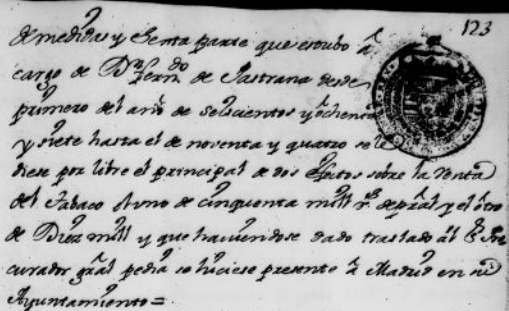 123
de medidas y Senta parte que estubo a
cargo de Dn Ferndo de Pastrana desde
primero del año de seiscientos y ochenta
y siete hasta el de noventa y quatro se le
diese por libre el principal de dos efectos sobre la Renta
del Tabaco el uno de cinquenta mill rs de pral y el otro
de Diez mill y que haviendose dado traslado al Pro
curador gral pedia se hiciese presente a Madrid en su
Ayuntamiento =